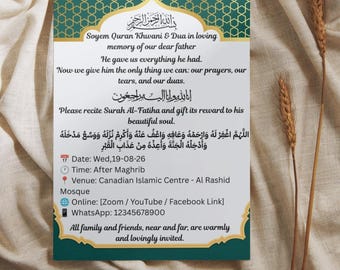 بسم الله الرحمن الرحيم
Soyem Quran Khwani & Dua in loving
memory of our dear father
He gave us everything he had.
Now we give him the only thing we can: our prayers, our
tears, and our duas.
إنا لله وإنا إليه راجعون
Please recite Surah Al-Fatiha and gift its reward to his
beautiful soul.
اللَّهُمَّ اغْفِرْ لَهُ وَارْحَمْهُ وَعَافِهِ وَاعْفُ عَنْهُ وَأَكْرِمْ نُزُلَهُ وَوَسِّعْ مُدْخَلَهُ
وَأَدْخِلْهُ الْجَنَّةَ وَأَعِذْهُ مِنْ عَذَابِ الْقَبْرِ
📅 Date: Wed,19-08-26
🕐 Time: After Maghrib
📍 Venue: Canadian Islamic Centre - Al Rashid
Mosque
🌐 Online: [Zoom / YouTube / Facebook Link]
📱 WhatsApp: 12345678900
All family and friends, near and far, are warmly
and lovingly invited.